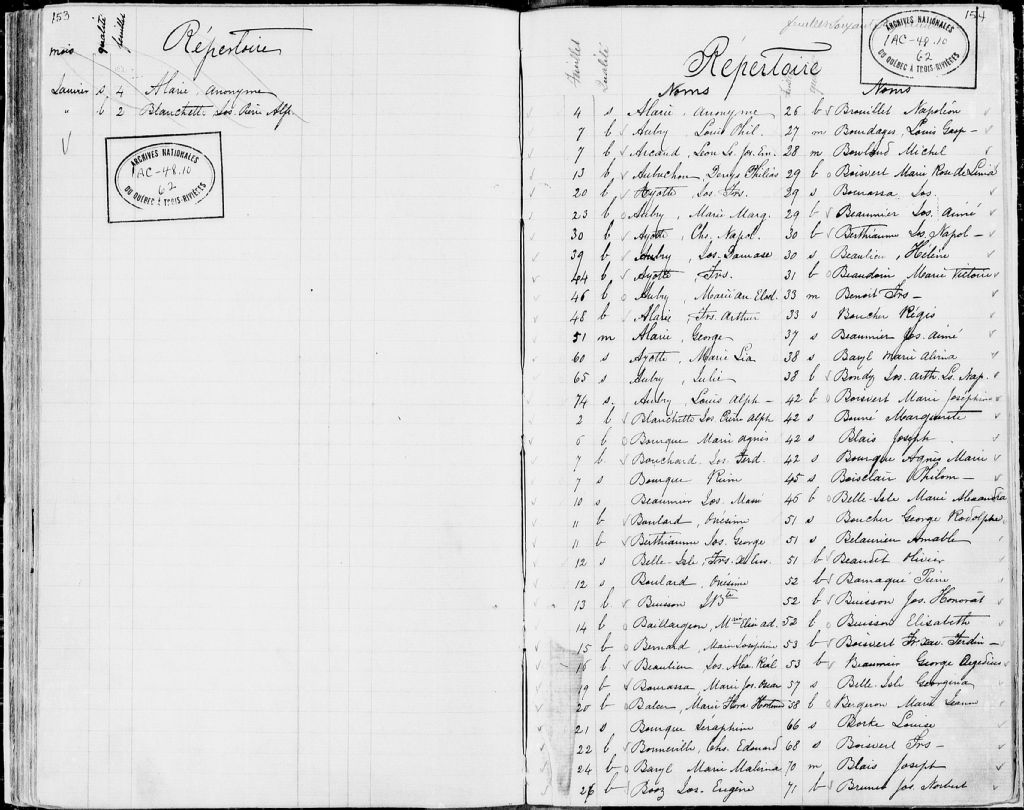 153
Répertoire
mois qualité feuillet
Janvier s 4 Alarie, Anonyme
" b 2 Blanchette Jos. Pierre Alp.
ARCHIVES NATIONALES
AC-48.10
62
DU QUÉBEC À TROIS-RIVIÈRES
154
ARCHIVES NATIONALES
AC-48.10
62
DU QUÉBEC À TROIS-RIVIÈRES
Répertoire
Feuillet Qualité Noms
4 s Alarie, Anonyme
7 b Aubry, Louis Phil.
7 b Arcand, Leon Ls. Jos. Em.
13 b Aubuchon, Denys Philias
20 b Ayotte Jos. Frs.
23 b Aubry, Marie Marg.
30 b Ayotte, Chs. Napol.
39 b Aubry, Jos. Damase
44 b Ayotte, Frs.
46 b Aubry, Marie An. Elod.
48 b Alarie, Frs. Arthur
51 m Alarie, George
60 s Ayotte, Marie Lia
65 s Aubry, Julie
74 s. Aubry, Louis Alph -
2 b Blanchette Jos. Pierre Alph
6 b Bourque Marie Agnis
7 b Bouchard, Jos. Ferd.
7 s Bourque Rem
10 s Beaumier Jos.
11 b Boulard, Onésime
11 b Berthiaume Jos. George
12 s Belle-Isle, Frs.
12 s Boulard, Onésime
13 b Buisson J.Bte
14 b Baillargeon, Mie Eliz. ad.
15 b Bernard, Marie Josephine
16 b Beaulieu Jos. Alex. Réal
19 b Bourassa Marie Jos. Oscar
20 b Balcer, Marie Flora Hortense
21 s Bourque Séraphine
22 b Bonneville, Chs. Edouard
24 b Baryl Marie Malvina
26 b Booz Jos. Eugène
Noms
26 b Brouillet Napoléon
27 m Bourdages, Louis Gasp -
28 m Bowland Michel
29 b Boisvert Marie Rose de Lima
29 s Bourassa Jos.
29 b Beaumier Jos. Aimé
30 b Berthiaume Jos. Napol -
30 s Beaulieu, Hélène
31 b Beaudoin Marie Victoire
33 m Benoit Frs -
33 s Boucher Régis
37 s Beaumier Jos. Aimé
38 s Baryl Marie Alvina
38 b Bondy Jos. Arth. Ls. Nap.
42 b Boisvert Marie Joséphine
42 s Bourré Marguerite
42 s Blais Joseph
42 s Bourque Agnès Marie
45 s Boisclair Philom -
46 b Belle-Isle Marie Alexandra
51 s Boucher George Rodolphe
51 s Belaurier Amable
51 b Beaudet Olivier
52 b Bamaqué Pierre
52 b Buisson Jos. Honorat
52 b Buisson Elisabeth
53 b Boisvert Fr. Xav. Ferdin -
53 b Beaumier George Aegédius
57 s Belle-Isle Georgina
58 b Bergeron Marie Jeanne
66 s Borke Louise
68 s Boisvert Frs -
70 m Blais Joseph
71 b Brunel Jos. Norbert